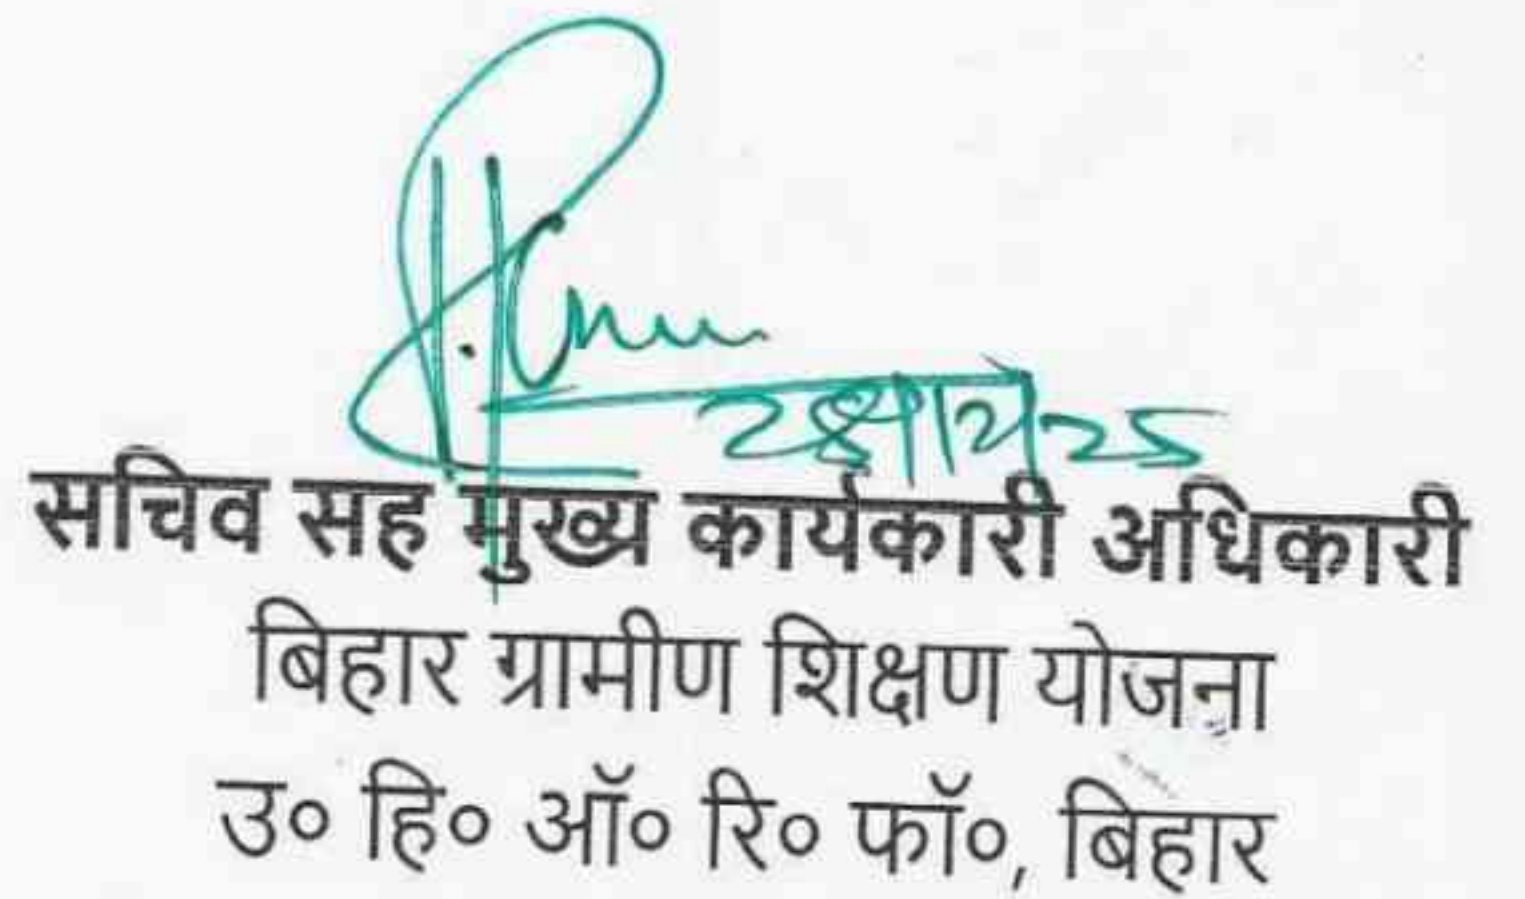 सचिव सह मुख्य कार्यकारी अधिकारी
बिहार ग्रामीण शिक्षण योजना
उ० हि० ऑ० रि० फॉ०, बिहार